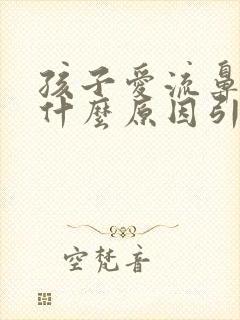 孩子愛流鼻
什麼原因引
空梵音